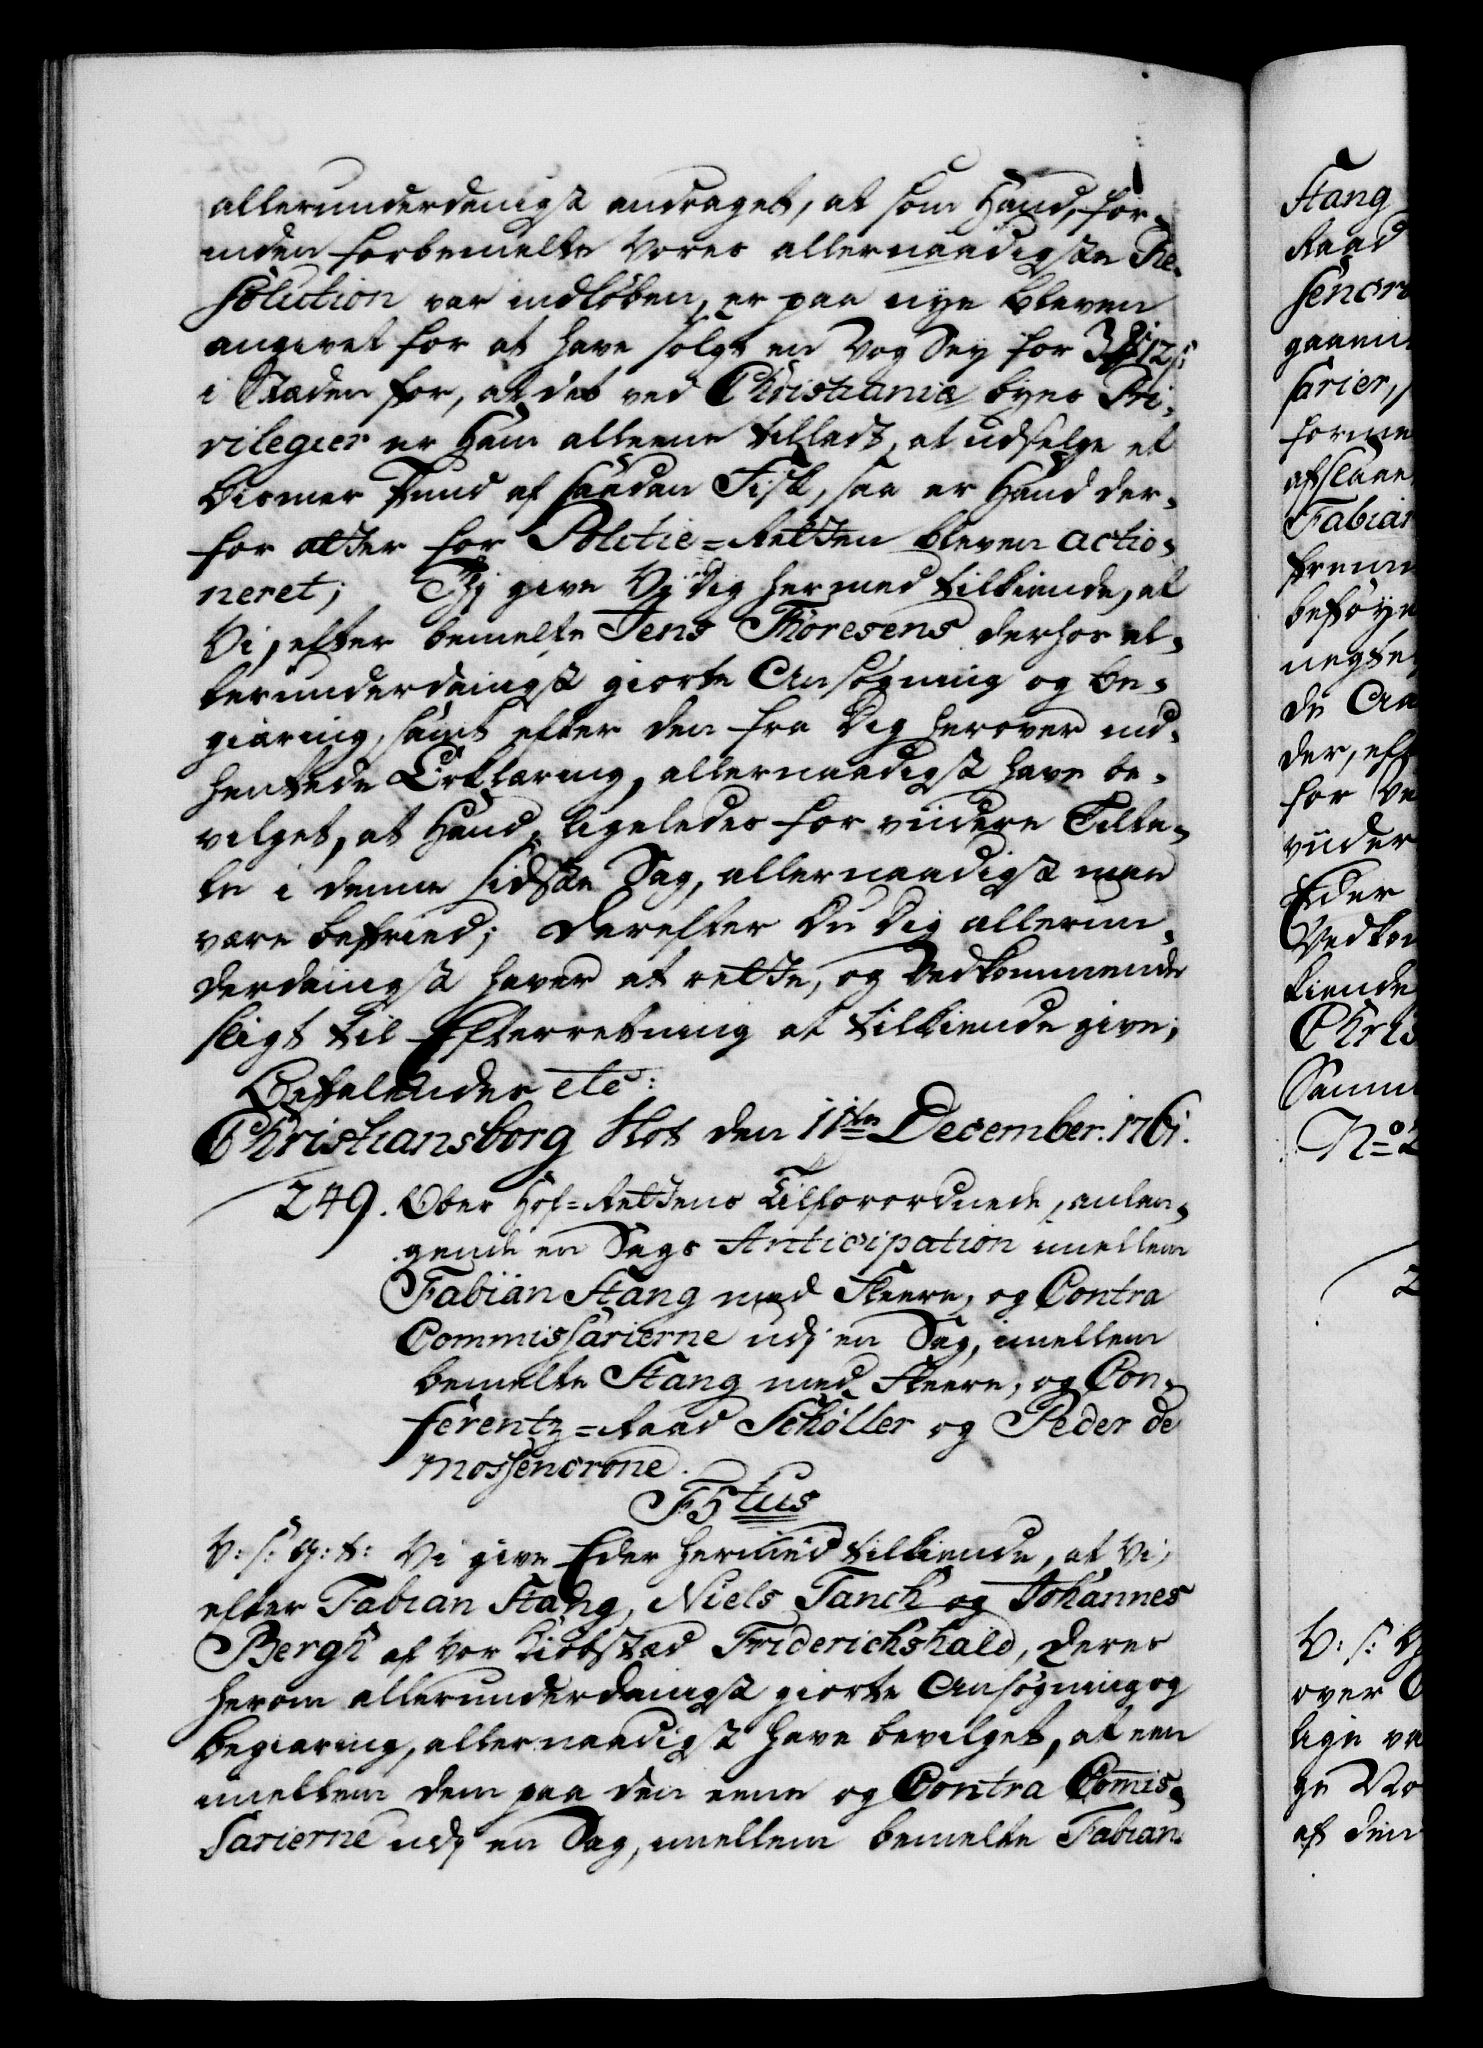 allerunderdanigst andraget, at som Hand, for-
inden forbemelte Vores allernaadigste Re-
solution var indløben, er paa nye bleven
angivet for at have solgt en Vog Sey for 3 12 s:
i Stæden for, at det ved Christiania byes Pri-
vilegier er Ham alleene tilladt, at udselge et
Bismer Pund af saadan Fisk, saa er Hand der-
for atter for Politie-Retten bleven actio-
neret; Thj give Vj Dig hermed tilkiende, at
Vi, efter bemelte Jens Thoresens derhos al-
lerunderdanigst giorte Ansøgning og be-
giæring, samt efter den fra Dig herover ind-
hentede Erklæring, allernaadigst have be-
vilget, at Hand, ligeledes for viidere Tilta-
le i denne sidste Sag, allernaadigst maae
være befried; Derefter Du Dig allerun-
derdanigst haver at rette, og Vedkommende
sligt til Efterretning at tilkiende give;
Befalendes etc:
Christiansborg Slot den 11ten December. 1761.
249. Ober Hof-Rettens Tilforordnede, anlan-
gende en Sags Anticipation imellem
Fabian Stang med Fleere, og Contra
Commissarierne udj en Sag, imellem
bemelte Stang med Fleere, og Con-
ferentz-Raad Schøller og Peder de
Mossencrone.
F5tus
V: s: G: t: Vi give Eder hermed tilkiende, at Vi,
efter Fabian Stang, Niels Tanch og Johannes
Bergh af Vor Kiøbstæd Friderichshald, deres
herom allerunderdanigst giorte Ansøgning og
begiæring, allernaadigst have bevilget, at een
imellem dem paa den eene og Contra Comis-
sarierne udj en Sag, imellem bemelte Fabian
Stang
Raad
gaaen
Fabian
over